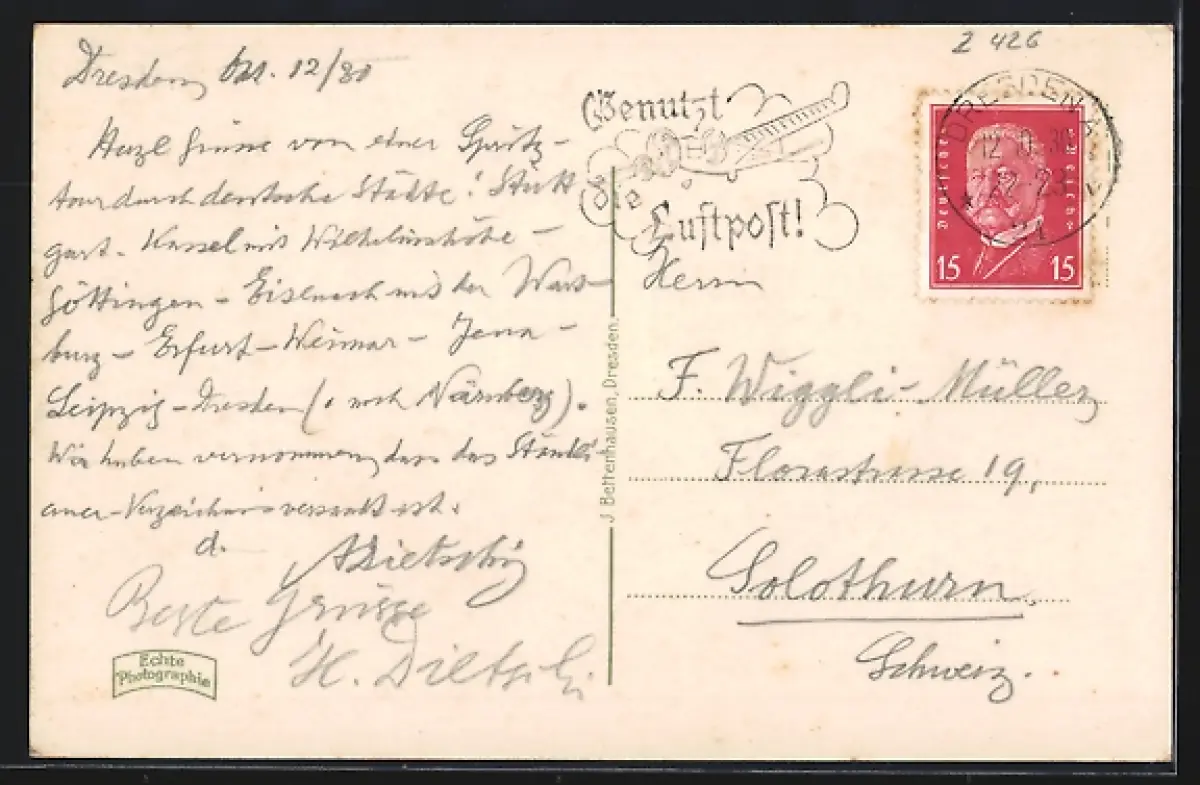 Z 426
Dresden, 12/30
Herzl Grüsse von einer Spritz-
tour durch deutsche Städte! Stutt
gart. Kassel mit Wilhelmshöhe -
Göttingen - Eisenach mit der Wart-
burg - Erfurt - Weimar - Jena -
Leipzig - Dresden (. noch Nürnberg).
Wir haben vernommen, dass das
-Verzeichnis versandt ist.
d. ADietschi
Beste Grüsse
H. Dietschi
Echte
Photographie
J. Bettenhausen, Dresden.
Benutzt
die
Luftpost!
DRESDEN
12.10.30
22-23
Deutsches Reich
15 15
Herrn
F. Wiggli-Müller,
Florastrasse 19,
Solothurn.
Schweiz.